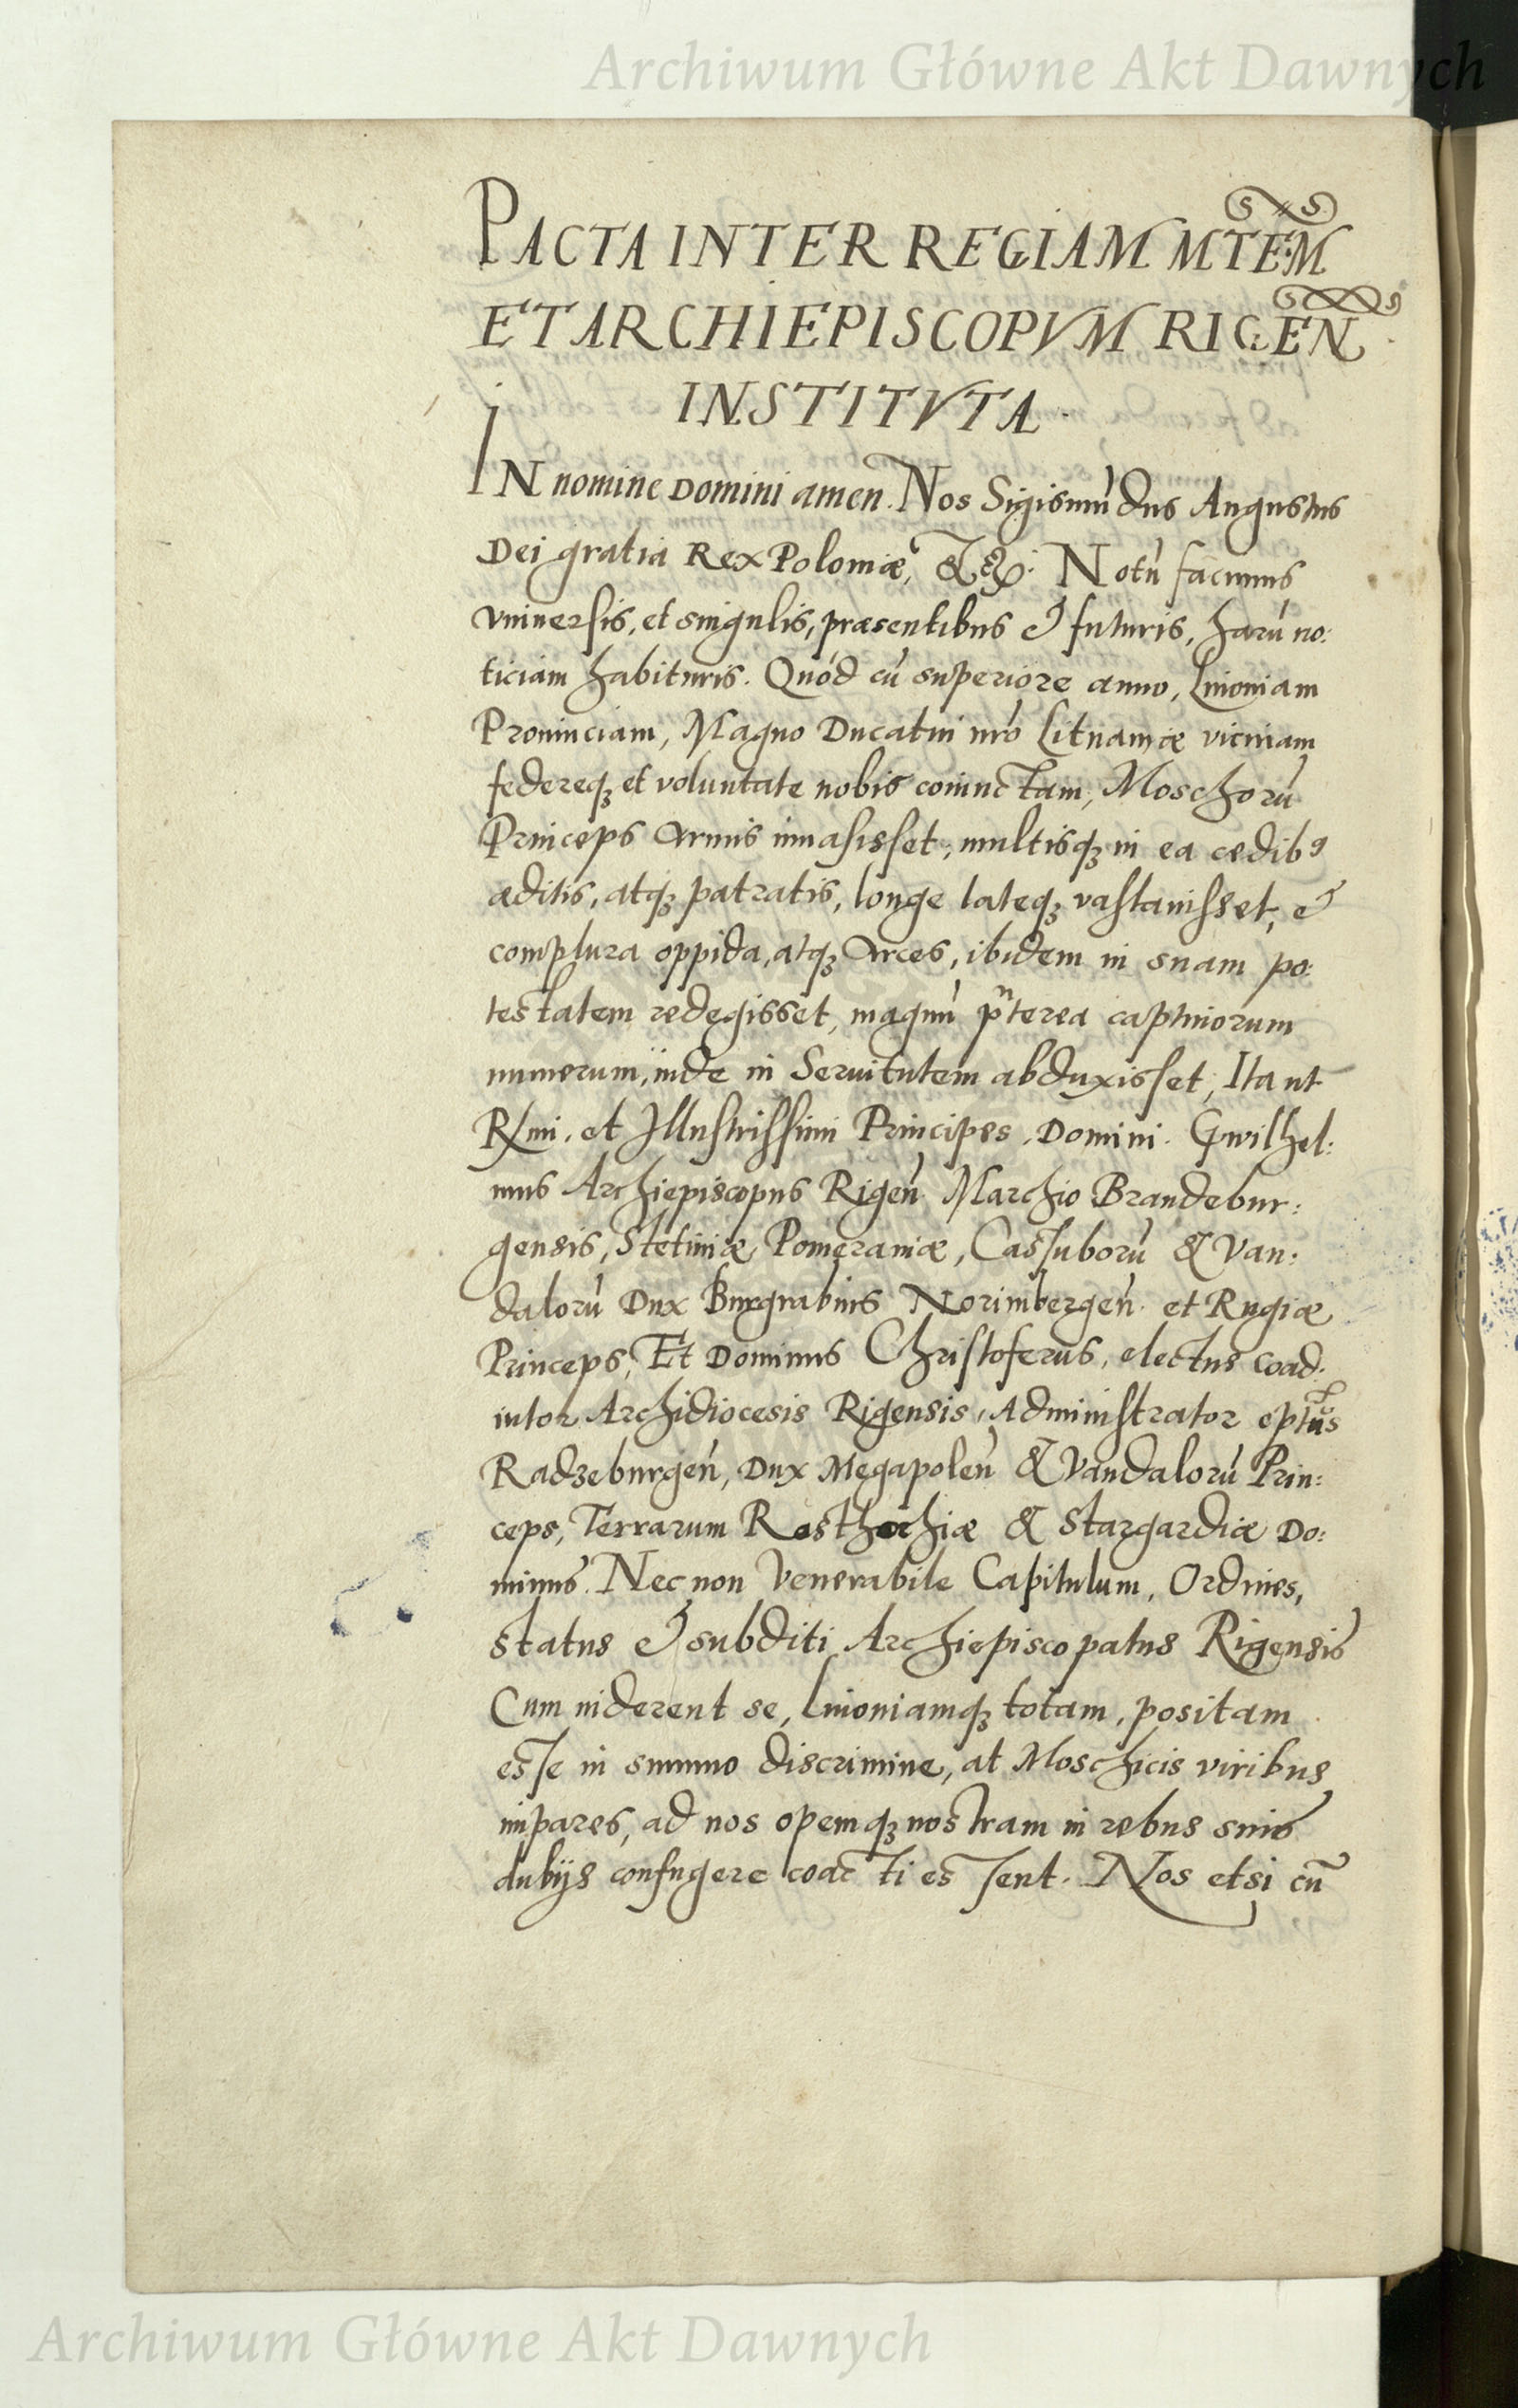 Archiwum Główne Akt Dawnych
PACTA INTER REGIAM MTEM
ET ARCHIEPISCOPVM RIGEN
INSTITVTA.
IN nomine Domini amen. Nos Sigismũdus Augustus
Dei gratia Rex Poloniæ, &c. Notũ facimus
vniuersis, et singulis, præsentibus & futuris, harũ no:
ticiam habituris. Quód cũ superiore anno, Liuoniam
Prouinciam, Magno Ducatui nr̃o Lituaniæ vicinam
federeq₃ et voluntate nobis coniunctam, Moschorũ
Princeps armis inuasisset, multisq₃ in ea cædibꝰ
æditis, atq₃ patratis, longe lateq₃ vastauisset, &
complura oppida, atq₃ Arces, ibidem in suam po:
testatem redegisset, magnũ p̃terea captiuorum
numerum, inde in Seruitutem abduxisset, Ita ut
Rx̃mi. et Illustrissimi Principes. Domini. Gwilhel:
mus Archiepiscopus Rigen̄ Marchio Brandebur:
gensis, Stetiniæ, Pomeraniæ, Cassuborũ & Van:
dalorũ Dux Burgrabius Norimbergen̄. et Rugiæ
Princeps, Et Dominus Christoferus, electus Coad:
iutor Archidiocesis Rigensis, Administrator eptus
Radzeburgen̄, Dux Megapolen̄ & Vandalorũ Prin:
ceps, Terrarum Rosthochiæ & Stargardiæ Do:
minus. Nec non Venerabile Capitulum, Ordines,
status & subditi Archiepiscopatus Rigensis
Cum uiderent se, Liuoniamq₃ totam, positam
esse in summo discrimine, at Moschicis viribus
impares, ad nos opemq₃ nostram in rebus suis
dubijs confugere coacti essent. Nos etsi cũ
Archiwum Główne Akt Dawnych